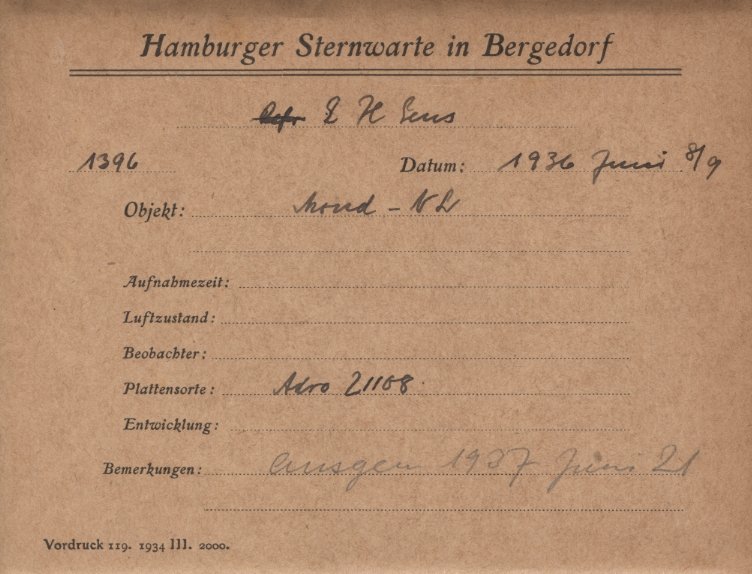 Hamburger Sternwarte in Bergedorf
1396 Datum: 1936 Juni 8/9
Objekt: Mond - NL
Aufnahmezeit:
Luftzustand:
Beobachter:
Plattensorte: Astro 21108
Entwicklung:
Bemerkungen: 1937 Juni 21
Vordruck 119. 1934 III. 2000.